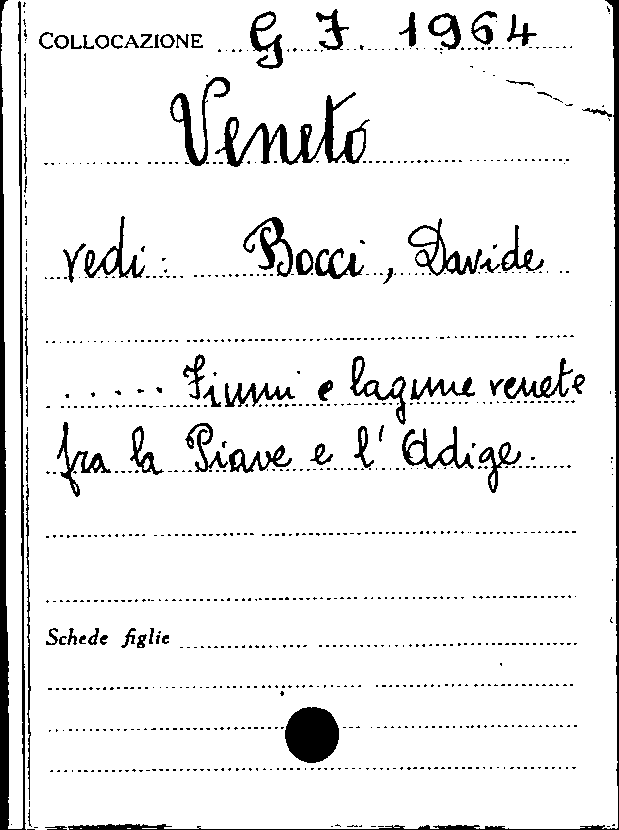 COLLOCAZIONE G. F. 1964
Veneto
vedi: Bocci, Davide
..... Fiumi e lagune venete
fra la Piave e l'Adige.
Schede figlie